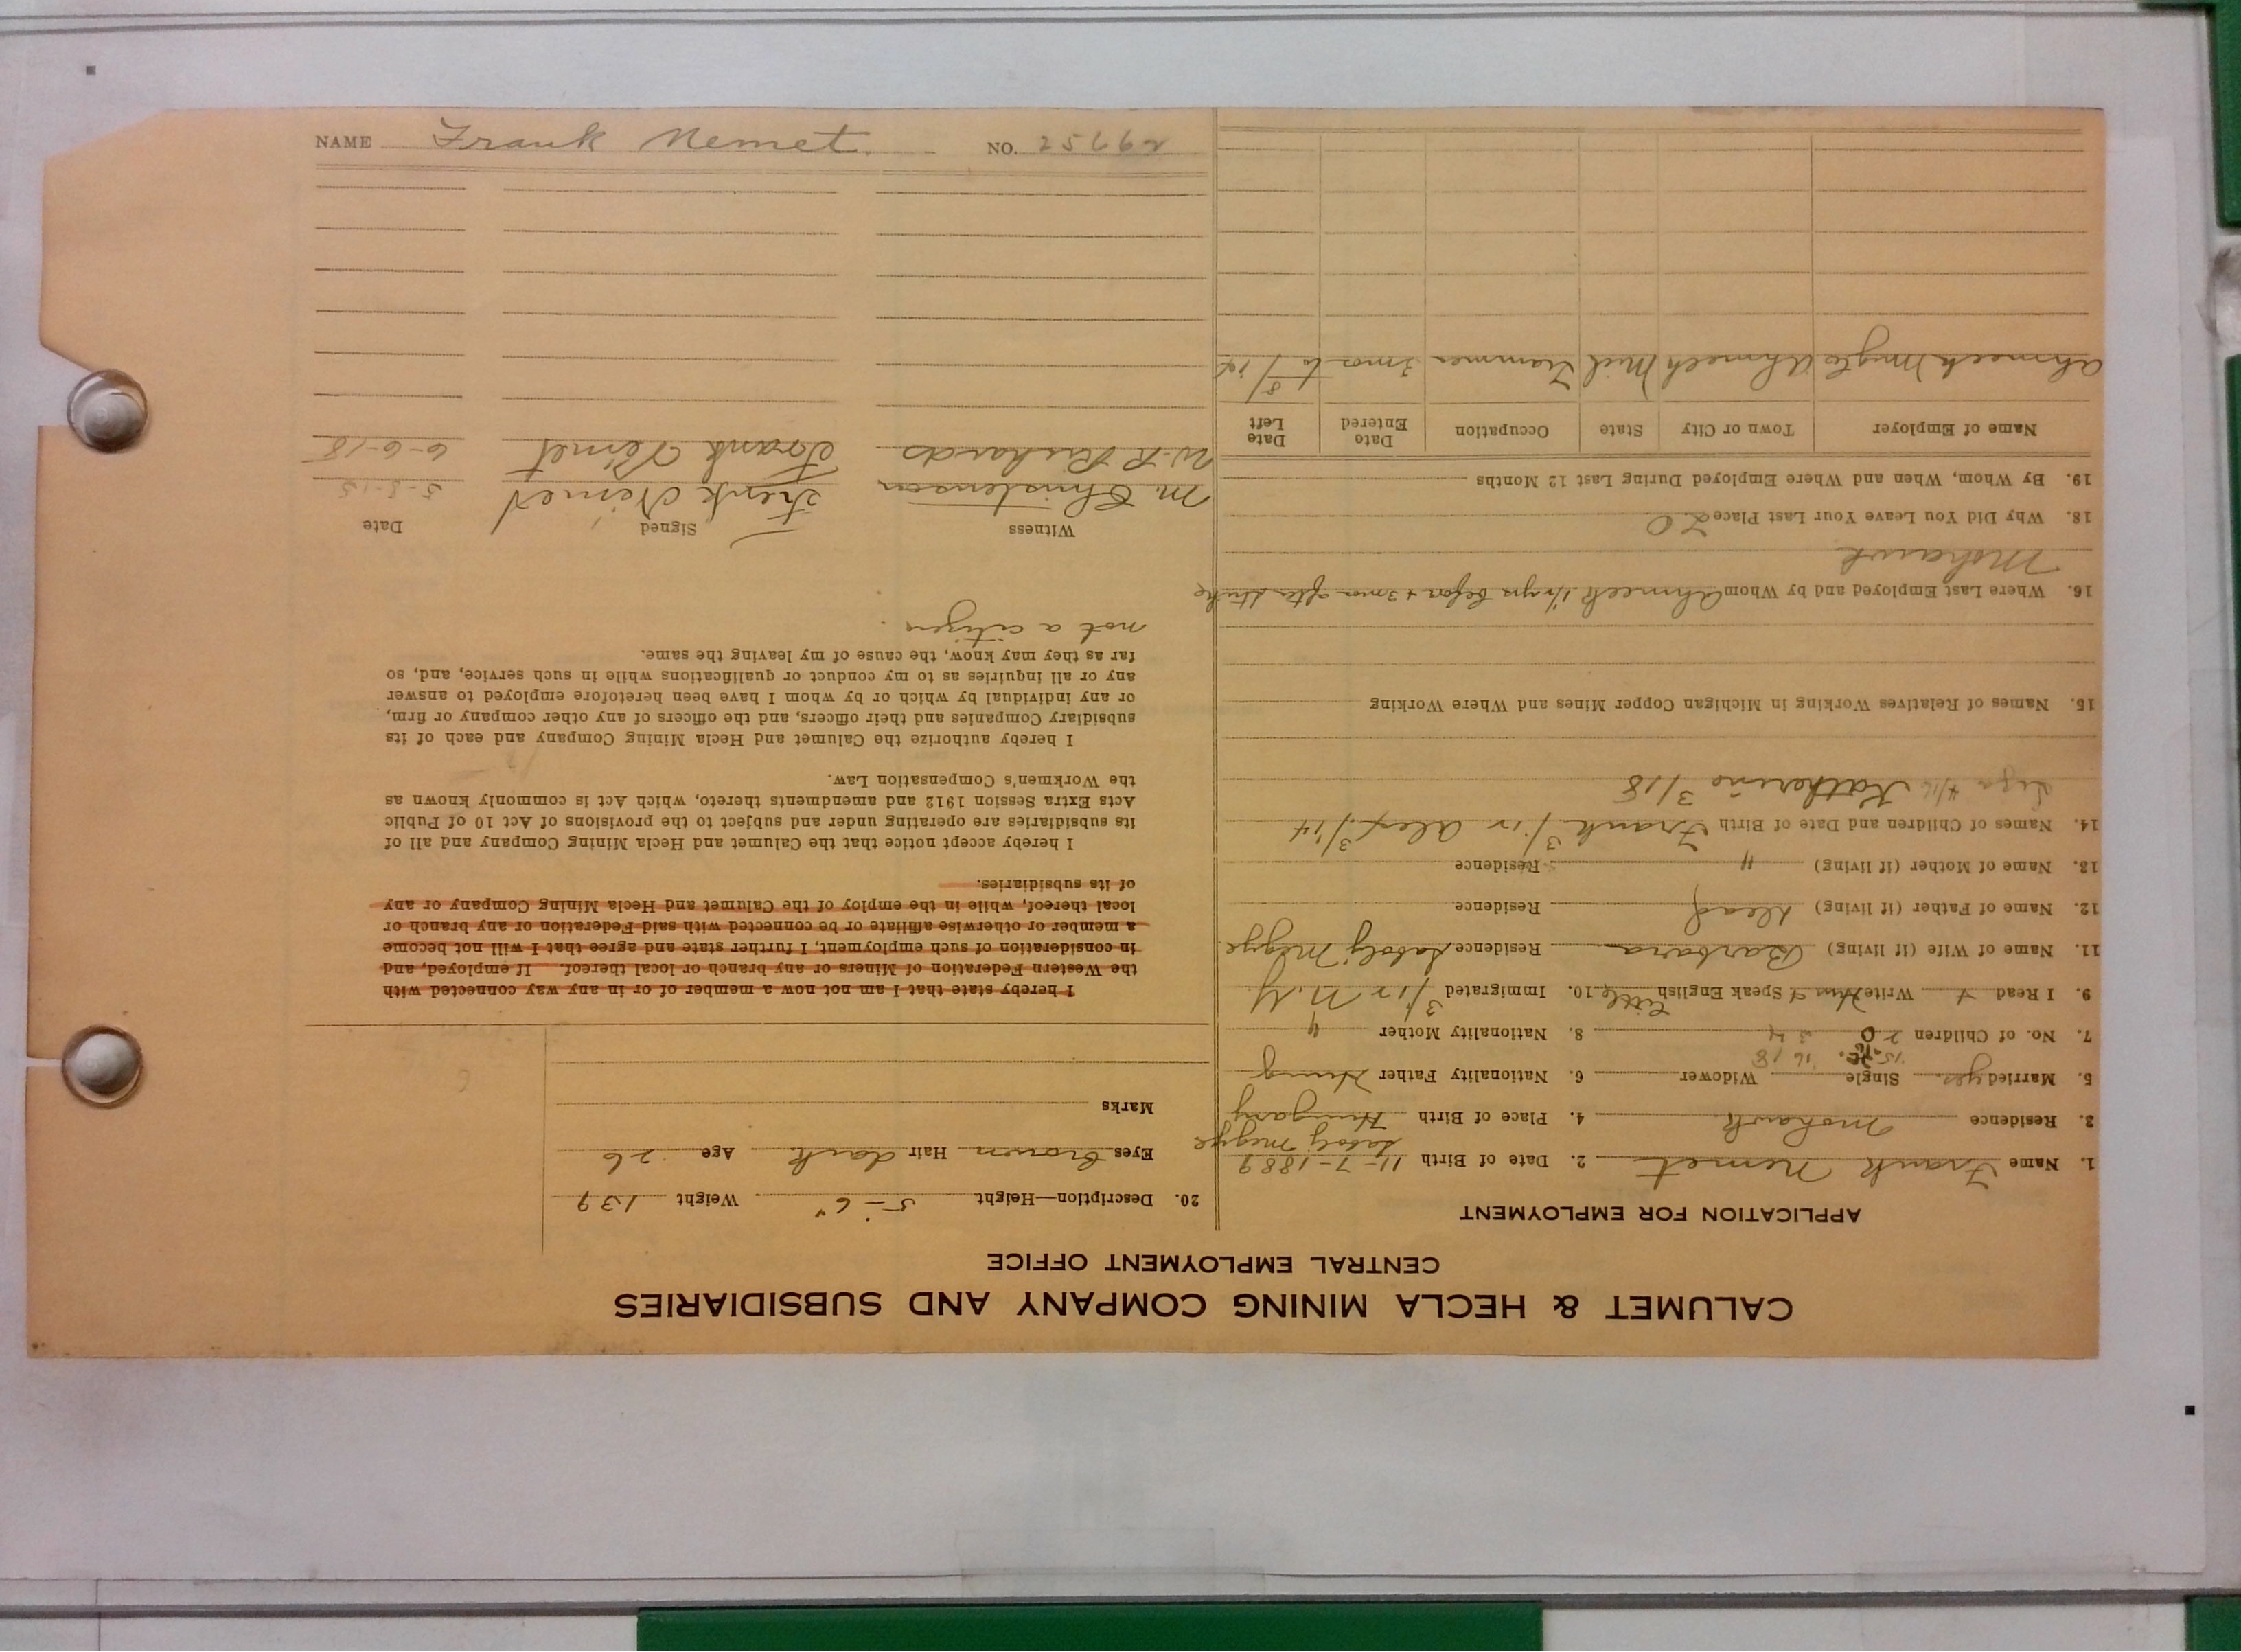 NAME Frank Nemet. NO. 25662
CALUMET & HECLA MINING COMPANY AND SUBSIDIARIES
CENTRAL EMPLOYMENT OFFICE
APPLICATION FOR EMPLOYMENT
1. Name Frank Nemet 2. Date of Birth 11-7-1889
3. Residence Mohawk 4. Place of Birth Hungary
5. Married yes. Single Widower 6. Nationality Father Hung
7. No. of Children 8. Nationality Mother "
9. I Read + Write Hun Speak English little 10. Immigrated 3/12 N.Y.
11. Name of Wife (if living) Barbara Residence
12. Name of Father (if living) dead Residence
13. Name of Mother (if living) " Residence
14. Names of Children and Date of Birth Frank 3/12 Alex 3/14
Katherine 3/18
15. Names of Relatives Working in Michigan Copper Mines and Where Working
16. Where Last Employed and by Whom Ahmeek 1½ yrs before + 3 mos after strike
Mohawk
18. Why Did You Leave Your Last Place LO
19. By Whom, When and Where Employed During Last 12 Months
Name of Employer Town or City State Occupation Date Entered Date Left
Ahmeek Mng Co Ahmeek Mich Trammer 3 mos to
20. Description—Height 5-6" Weight 139
Eyes brown Hair dark Age 26
Marks
I hereby state that I am not now a member of or in any way connected with
the Western Federation of Miners or any branch or local thereof. If employed, and
in consideration of such employment, I further state and agree that I will not become
a member or otherwise affiliate or be connected with said Federation or any branch or
local thereof, while in the employ of the Calumet and Hecla Mining Company or any
of its subsidiaries.
I hereby accept notice that the Calumet and Hecla Mining Company and all of
its subsidiaries are operating under and subject to the provisions of Act 10 of Public
Acts Extra Session 1912 and amendments thereto, which Act is commonly known as
the Workmen's Compensation Law.
I hereby authorize the Calumet and Hecla Mining Company and each of its
subsidiary Companies and their officers, and the officers of any other company or firm,
or any individual by which or by whom I have been heretofore employed to answer
any or all inquiries as to my conduct or qualifications while in such service, and, so
far as they may know, the cause of my leaving the same.
not a citizen.
Witness Signed Date
M. Christenson Frenk Nemet
W. R. Richards Frank Nemet 6-6-18